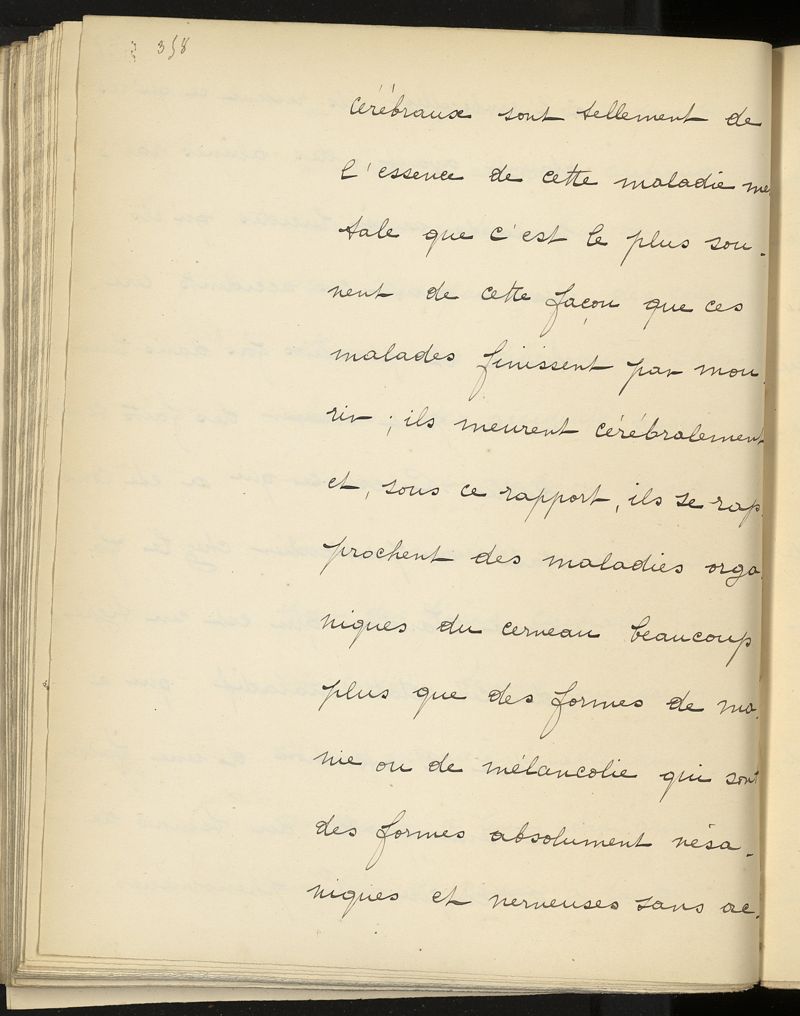 358
cérébraux sont tellement de
l'essence de cette maladie me
tale que c'est le plus sou-
vent de cette façon que ces
malades finissent par mou-
rir ; ils meurent cérébralement
et, sous ce rapport, ils se rap-
prochent des maladies orga-
niques du cerveau beaucoup
plus que des formes de ma-
nie ou de mélancolie qui sont
des formes absolument vésa-
niques et nerveuses sans ac-